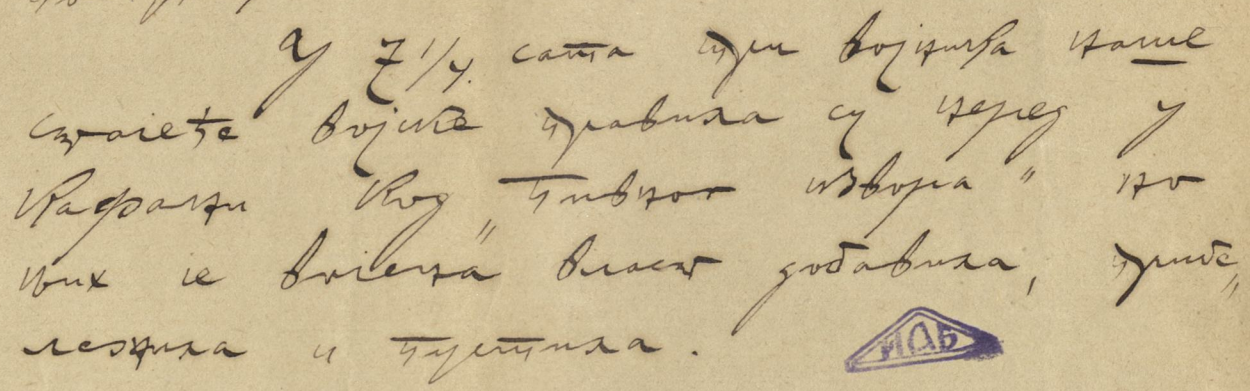 У 7 1/4. сата три војника наше
стајеће војске правила су неред у
кафани код „Пивног извора" но
њих је војена власт добавила, прибе„
лежила и пустила.
ИАБ